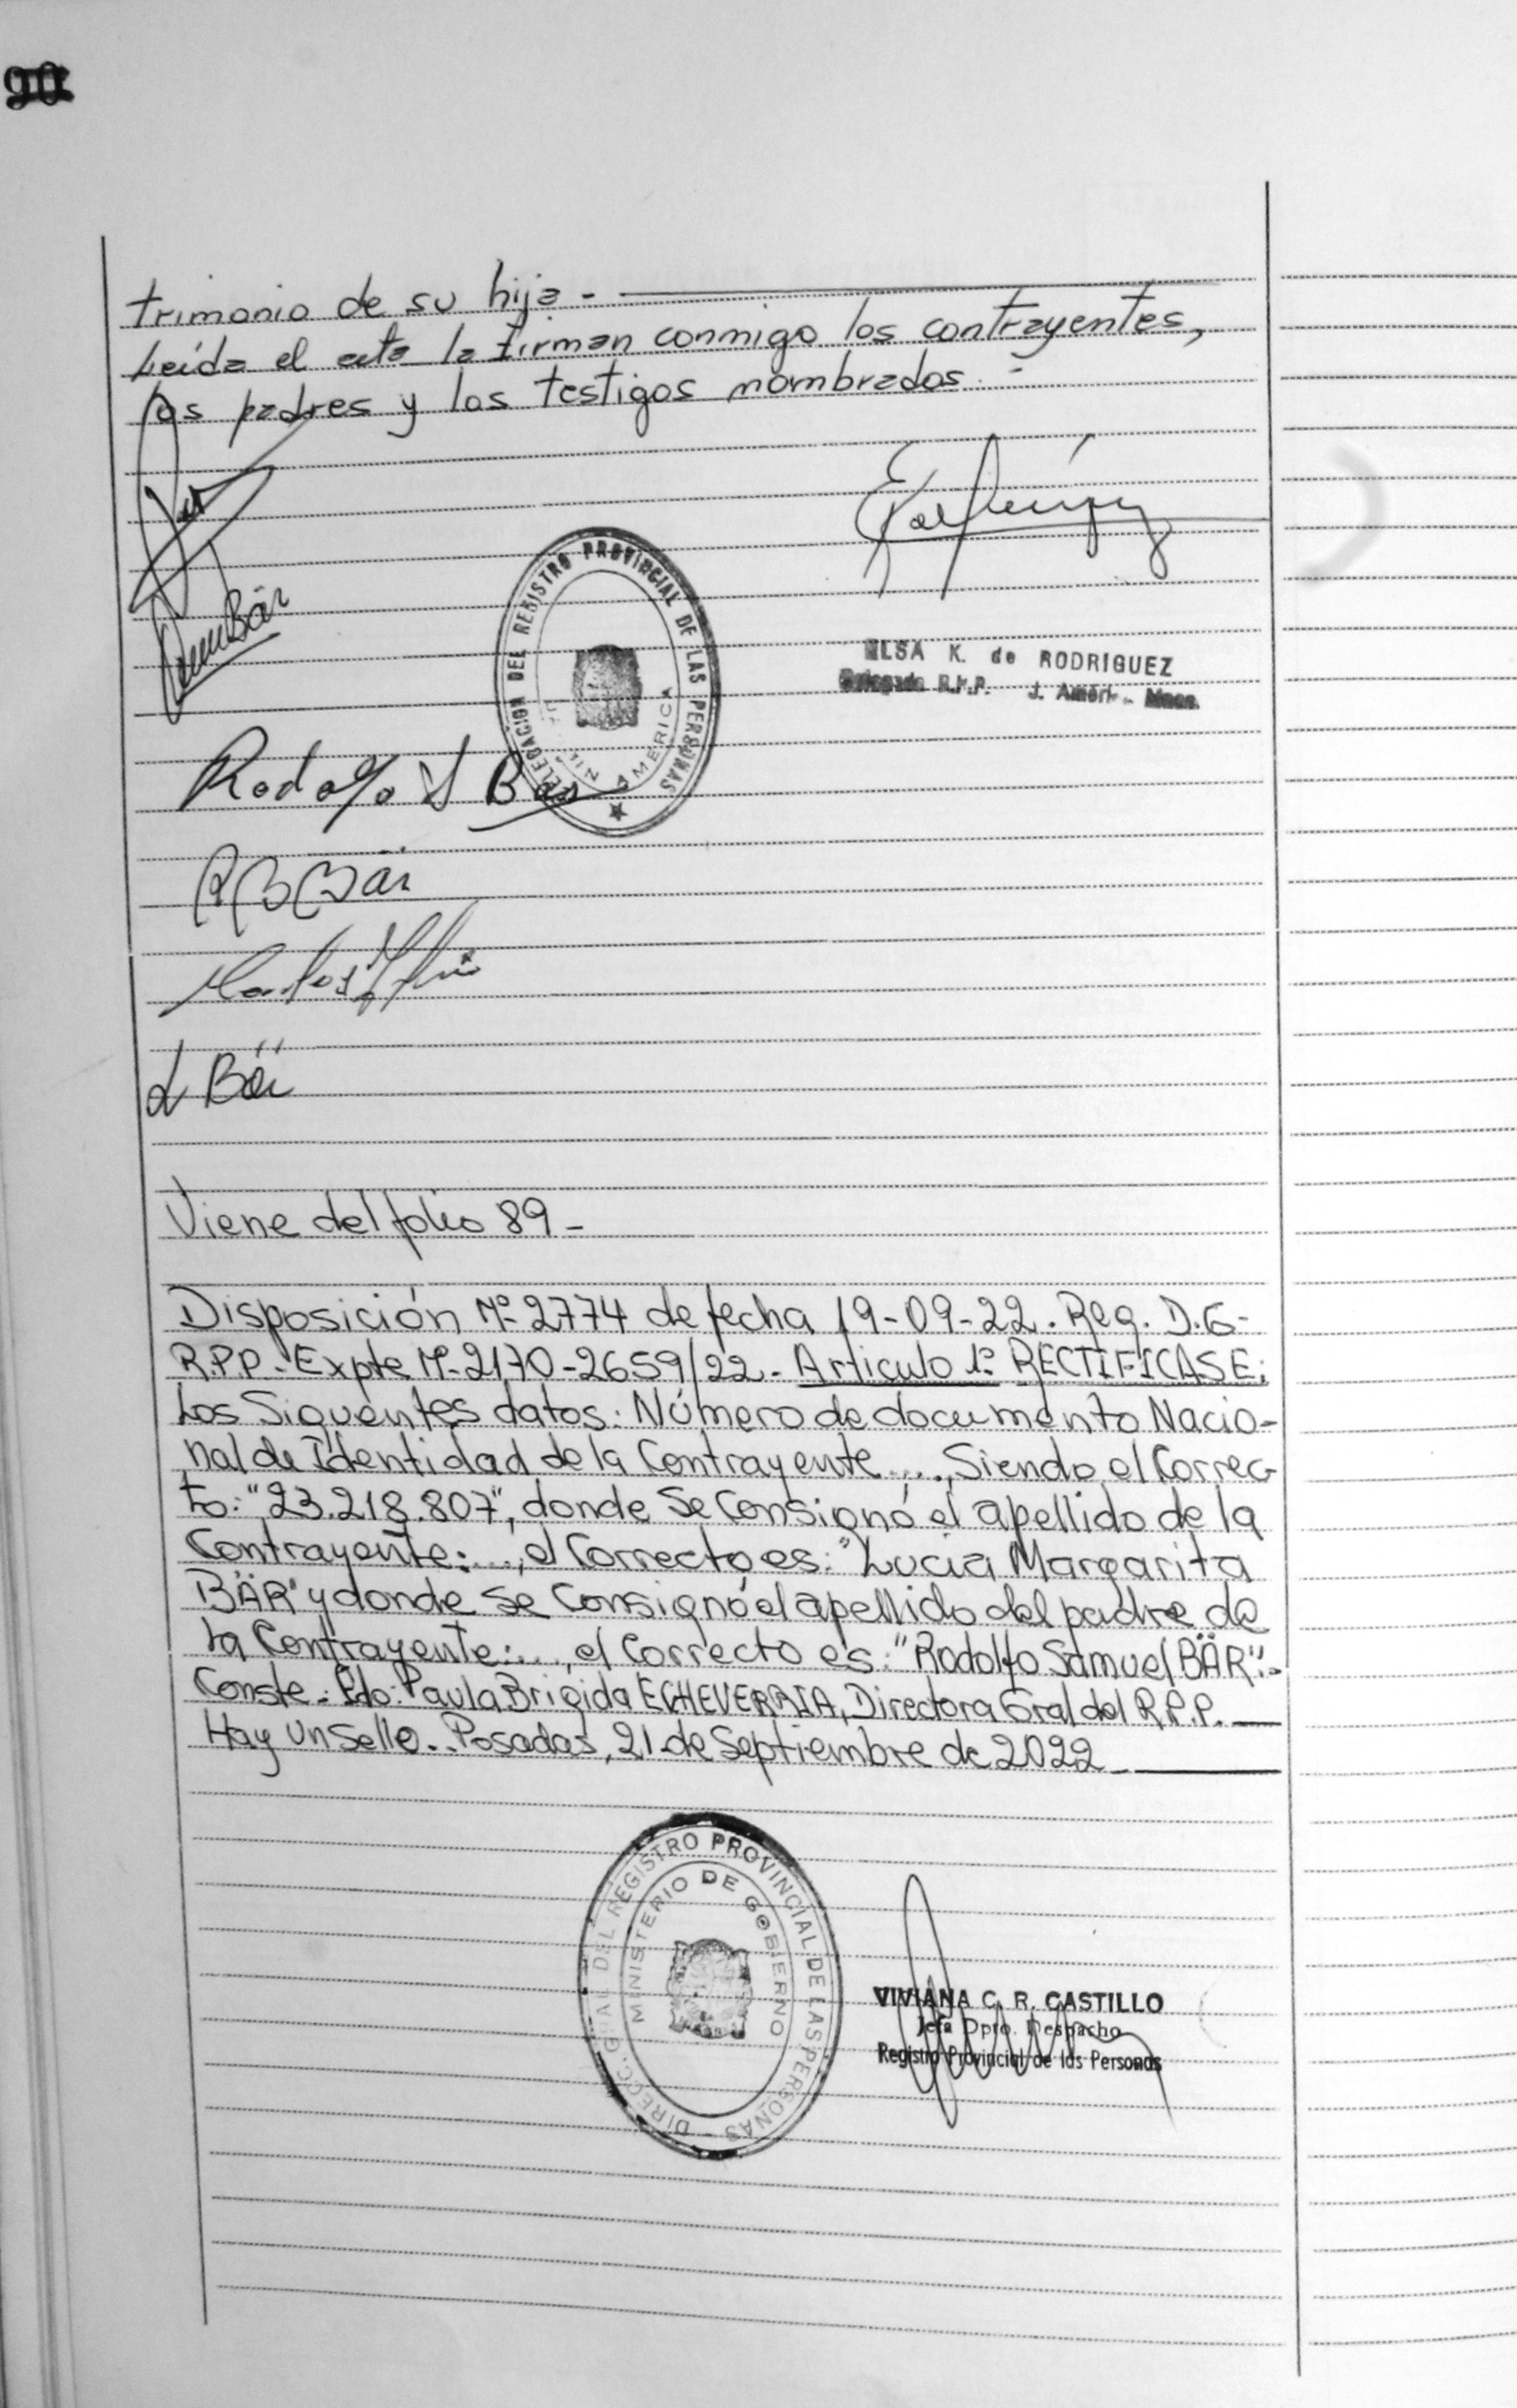 90
trimonio de su hija -
Leída el acta la firman conmigo los contrayentes,
los padres y los testigos nombrados. -
DELEGACION DEL REGISTRO PROVINCIAL DE LAS PERSONAS
AMERICA
ELSA K. de RODRIGUEZ
Delegada R.P.P. J. Améri
Bär
Rodolfo S Bär
R B Bär
L Bär
Viene del folio 89-
Disposición Nº 2774 de fecha 19-09-22. Reg. D.G-
R.P.P- Expte Nº-2170-2659/22- Articulo 1º RECTIFICASE:
Los Siguentes datos: Número de documento Nacio-
nal de Identidad de la Contrayente...., Siendo el Correc-
to: "23.218.807", donde Se Consignó el apellido de la
Contrayente:...., el Correcto es: "Lucia Margarita
BÄR" y donde se Consignó el apellido del padre de
la Contrayente:...., el Correcto es: "Rodolfo Samuel BÄR".-
Conste.- Fdo: Paula Brigida ECHEVERRIA, Directora Gral del R.P.P.
Hay un Sello.- Posadas, 21 de Septiembre de 2022
DIRECC. GRAL DEL REGISTRO PROVINCIAL DE LAS PERSONAS -
MINISTERIO DE GOBIERNO
VIVIANA C. R. CASTILLO
Jefa Dpto. Despacho
Registro Provincial de las Personas